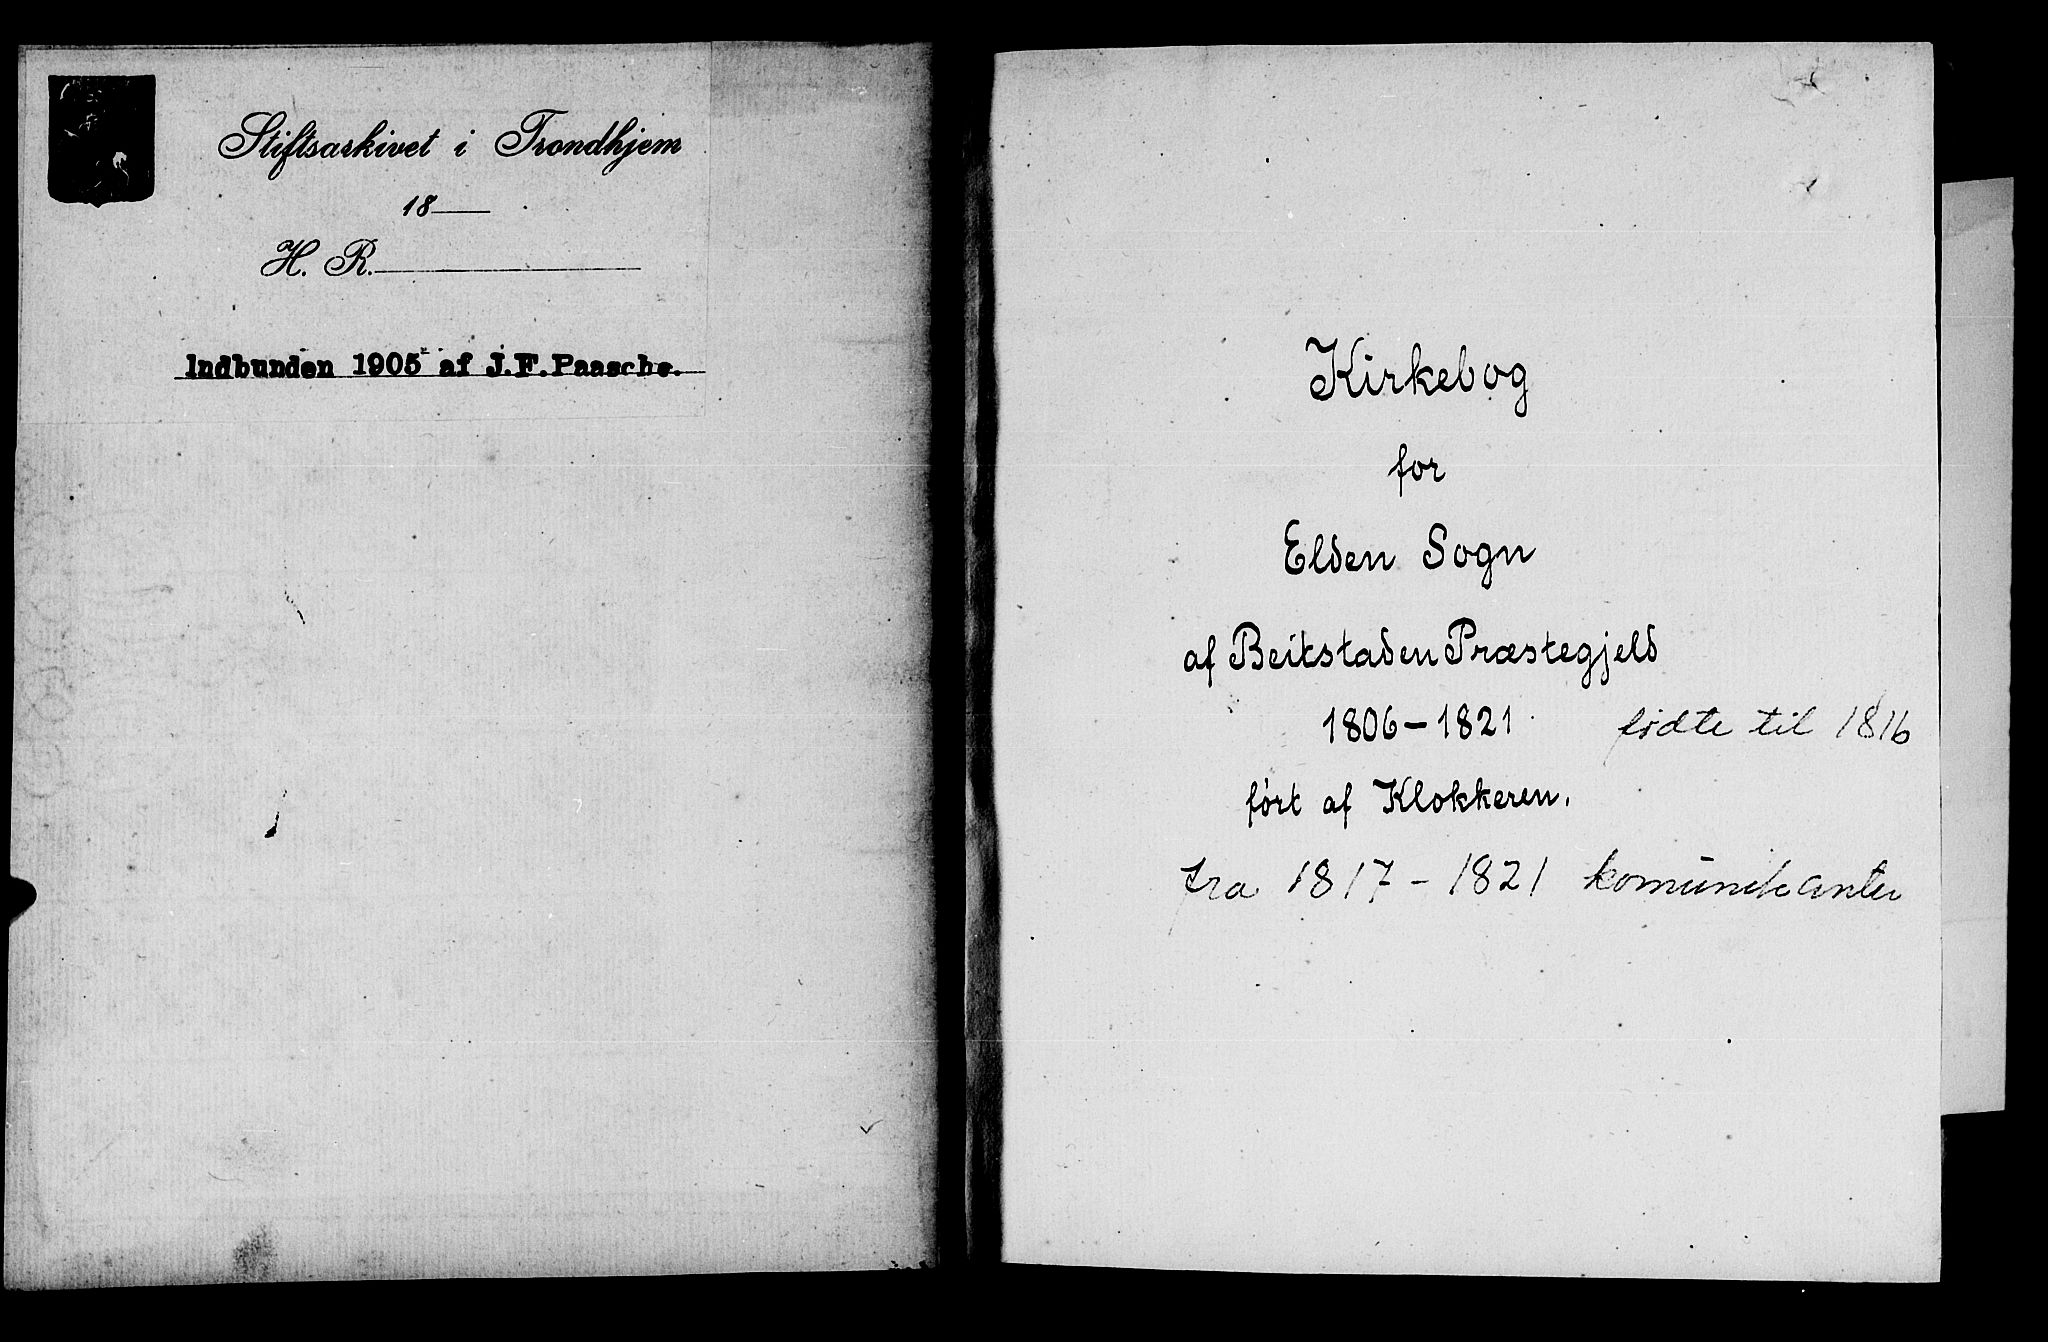 Stiftsarkivet i Trondhjem
18
H. R.
Indbunden 1905 af J.F. Paasche.
Kirkebog
for
Elden Sogn
af Beitstaden Præstegjeld
1806-1821 fødte til 1816
ført af Klokkeren.
fra 1817-1821 komunikanter